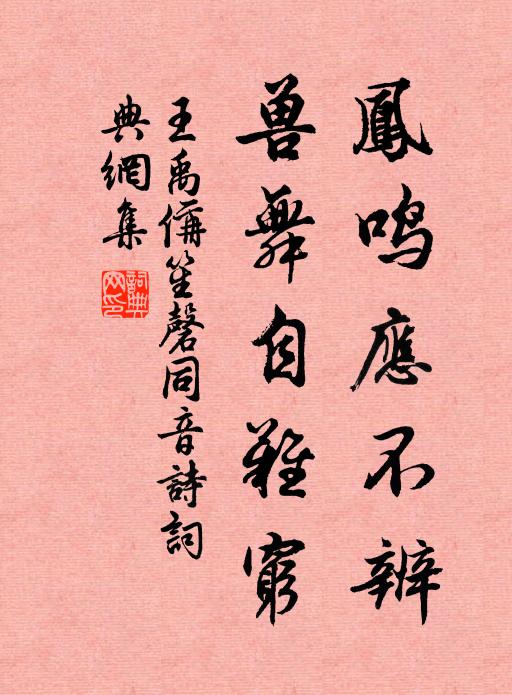 鳳鸣應不辨
兽舞自難窮
王禹偁笙磬同音詩詞
典網集
詞典网印